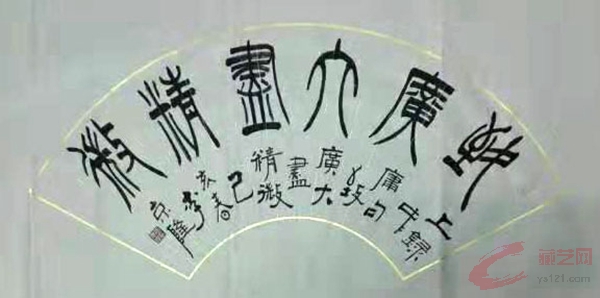 致廣大盡精微
上錄
中庸
句
致
廣大
盡
精微
己
亥春
李
藏艺网
ya121.com